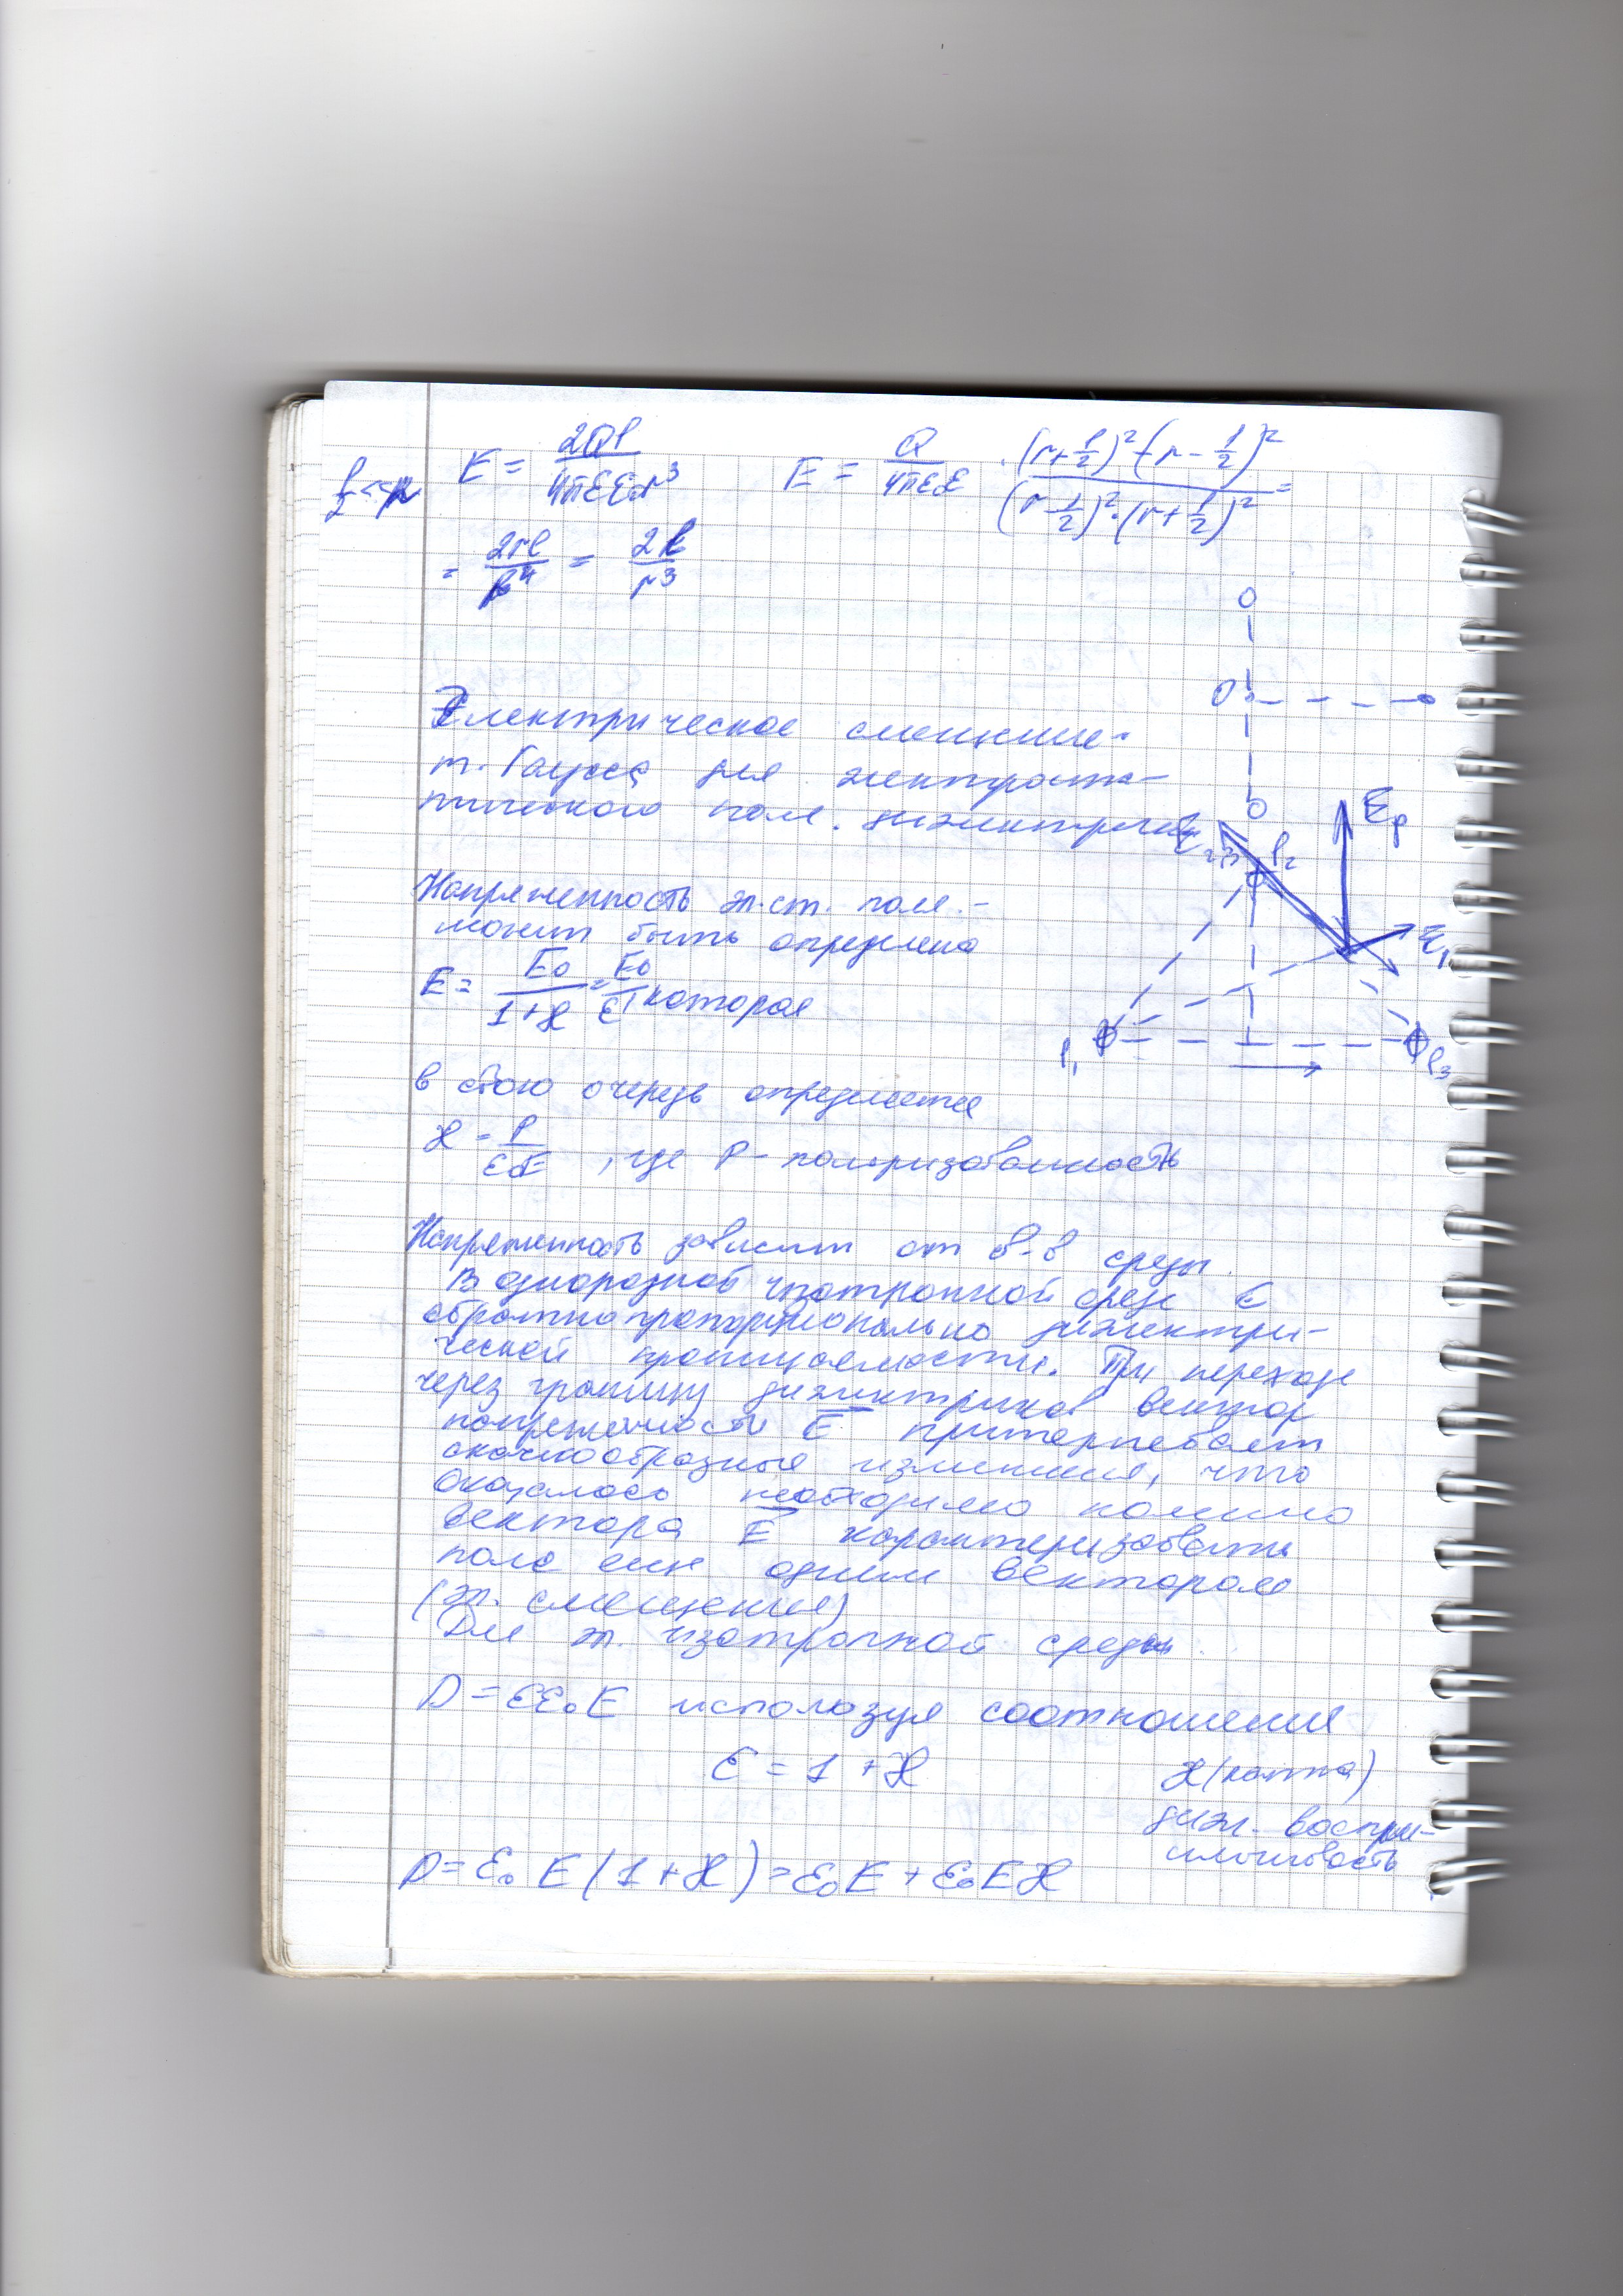 E = 2Ql / 4πεε₀r³   E = Q / 4πε₀ε · (r + l/2)² - (r - l/2)² / (r - l/2)² · (r + l/2)² =
l/2 << r
= 2rl / r⁴ = 2l / r³
Электрическое смещение.
т. Гаусса для электроста-
тического поля. диэлектрик
Напряженность эл.ст. поля -
может быть определена
E = E₀ / 1+ϰ = E₀ / ε, которая
в свою очередь определяется
ϰ = P / ε₀E, где P - поляризованность
E₂,₃
l₂
Eр
E₁
l₁
l₃
Напряженность зависит от св-в среды.
В однородной изотропной среде E
обратно пропорционально диэлектри-
ческой проницаемости. При переходе
через границу диэлектриков вектор
напряженности E притерпевает
скачкообразные изменения, что
оказалось необходимо помимо
вектора E характеризовать
поле еще одним вектором
(эл. смещения)
Для эл. изотропной среды.
D = εε₀E используя соотношения
ε = 1 + ϰ
ϰ (каппа)
диэл. воспри-
имчивость
D = ε₀ E (1 + ϰ) = ε₀E + ε₀Eϰ